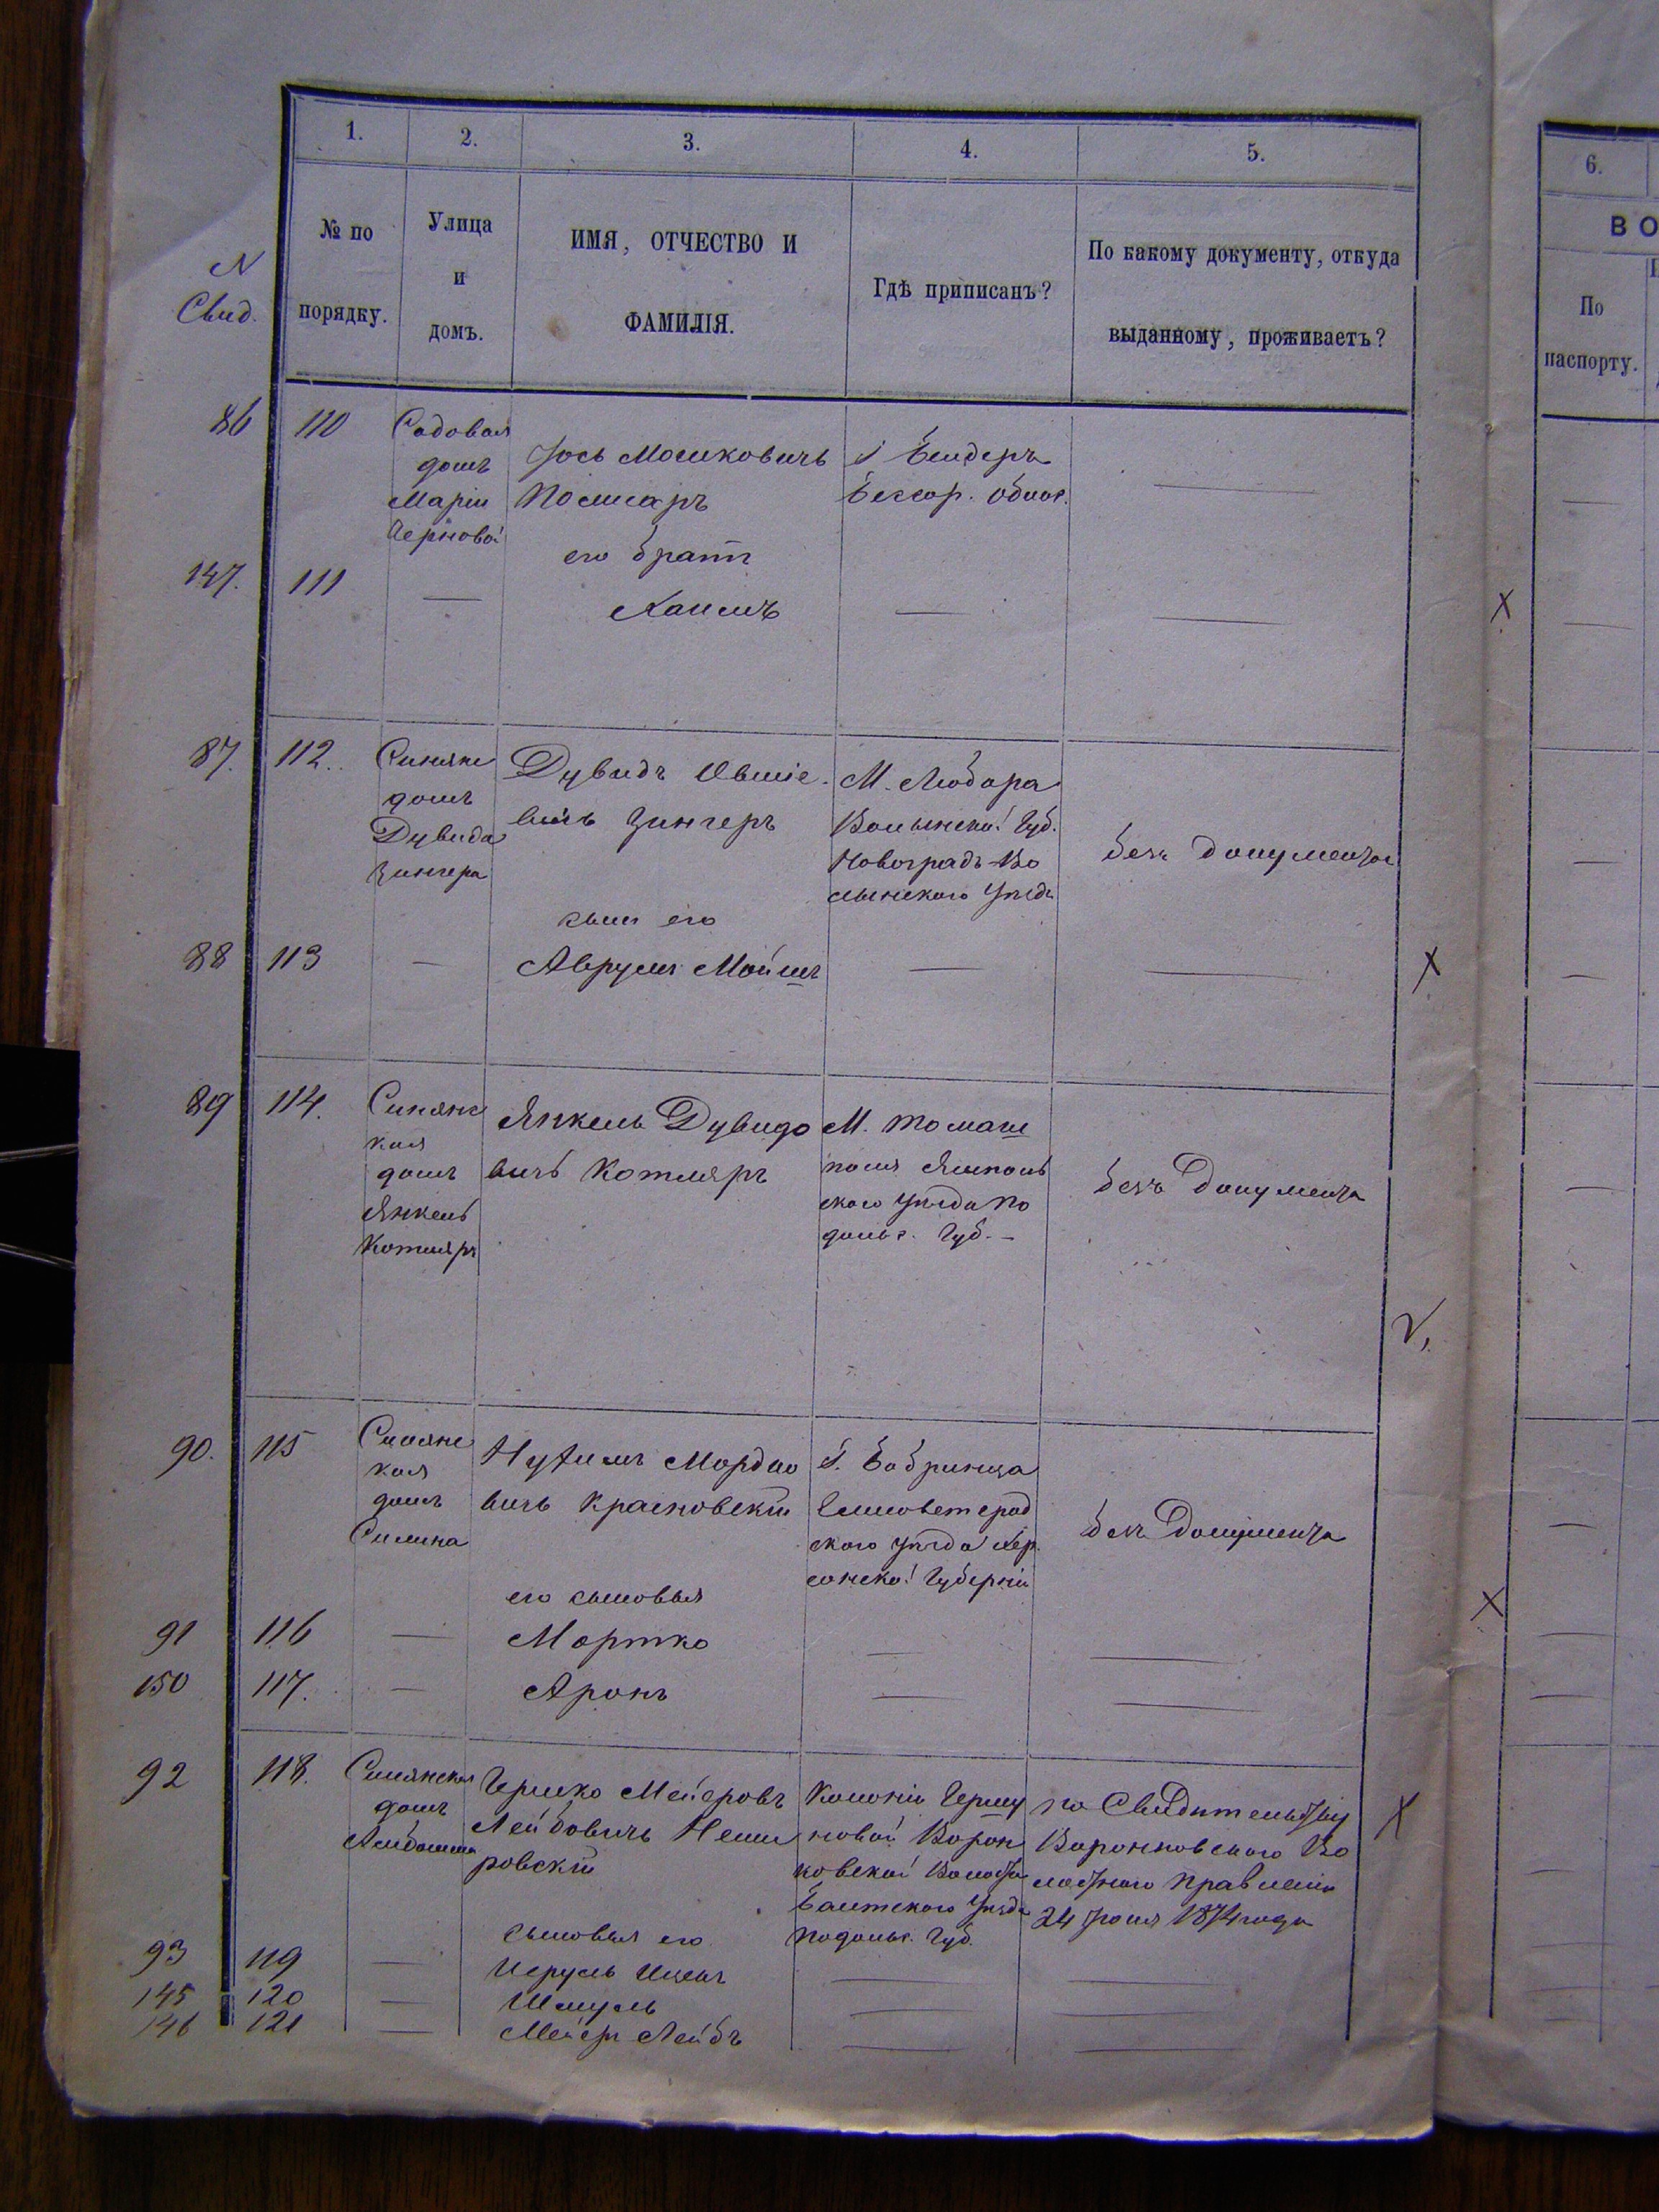 1. 2. 3. 4. 5. 6.
N Свид.
№ по порядку.
Улица и домъ.
ИМЯ, ОТЧЕСТВО И ФАМИЛІЯ.
Гдѣ приписанъ?
По какому документу, откуда выданному, проживаетъ?
ВО
По паспорту.
86 110
Садовая
домъ
Маріи
Черновой
Іось Мошковичъ
г Бендеръ
Бессар. Облас.
—
его братъ
147. 111 — Хаимъ — —
87. 112.
Синянс
домъ
Дувида
Зингера
Дувидъ Овшіе
вичъ Зингеръ
М. Любара
Волынской Губ.
Новоградъ-Во
лынского Уѣзда
безъ документа
сынъ его
88 113 — Аврумъ Мойшъ — —
89 114.
Синянс
кая
домъ
Янкель
Котляръ
Янкель Дувидо
вичъ Котляръ
М. Томаш
поля Ямполь
ского уѣзда По
дольс. Губ. —
безъ Документа
90. 115
Синянс
кая
домъ
Силина
Нухимъ Мордко
вичъ Красновскій
г. Бобринца
Елисаветград
ского уѣзда Хер
сонской Губерніи
безъ Документа
его сыновья
91 116 — Мортко — —
150 117. — Аронъ — —
92 118.
Синянская
домъ
Гершко Мейеровъ
Лейбовичъ Неми
ровскій
Колоніи Гершу
новой Ворон
ковской Волости
Балтского Уѣзда
Подольс. Губ.
по Свидѣтельству
Воронковского Во
лостного Правленія
24 Іюня 1874 года
сыновья его
93 119 — —
145 120 — Шмуль — —
146 121 — Мейеръ Лейбъ — —